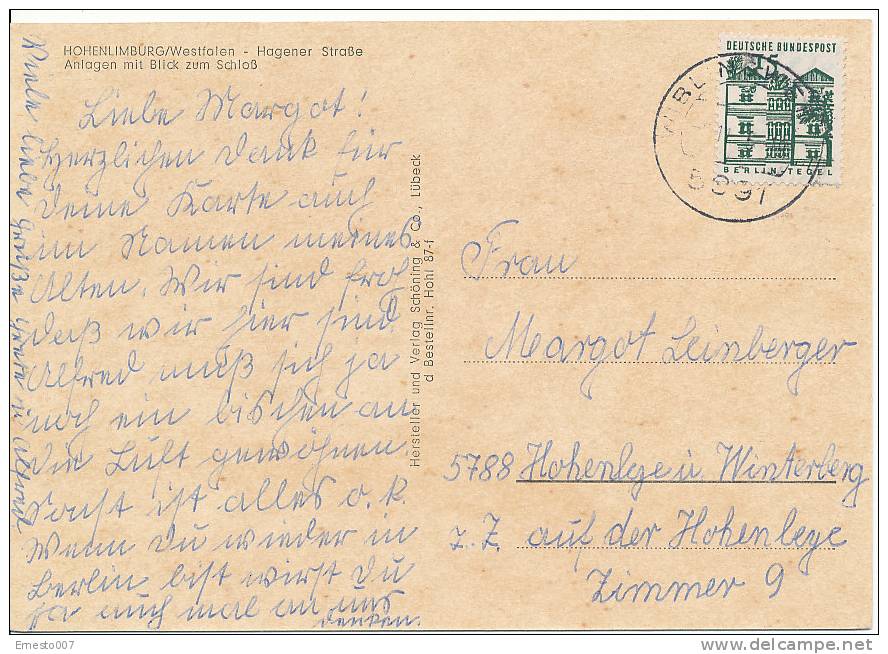 HOHENLIMBURG/Westfalen - Hagener Straße
Anlagen mit Blick zum Schloß
Liebe Margot!
Herzlichen Dank für
Deine Karte auch
im Namen meines
Alten. Wir sind froh
daß wir hier sind.
Alfred muß sich ja
noch ein bischen an
die Luft gewöhnen.
Sonst ist alles o.k.
Wenn Du wieder in
Berlin bist wirst Du
ja auch mal an uns
denken.
Viele liebe Grüße Grete u Alfred
Hersteller und Verlag Schöning & Co., Lübeck
d Bestellnr. Hohl 87-f
DEUTSCHE BUNDESPOST
15
BERLIN-TEGEL
5891
Frau
Margot Leinberger
5788 Hohenleye ü Winterberg
z. Z. auf der Hohenleye
Zimmer 9
Ernesto007
www.delcampe.net